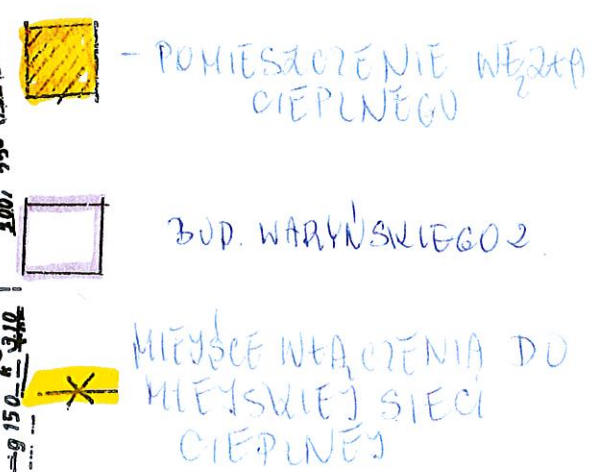 - POMIESZCZENIE WĘZŁA
CIEPLNEGO
BUD. WARYŃSKIEGO 2
MIEJSCE WŁĄCZENIA DO
MIEJSKIEJ SIECI
CIEPLNEJ
g 150